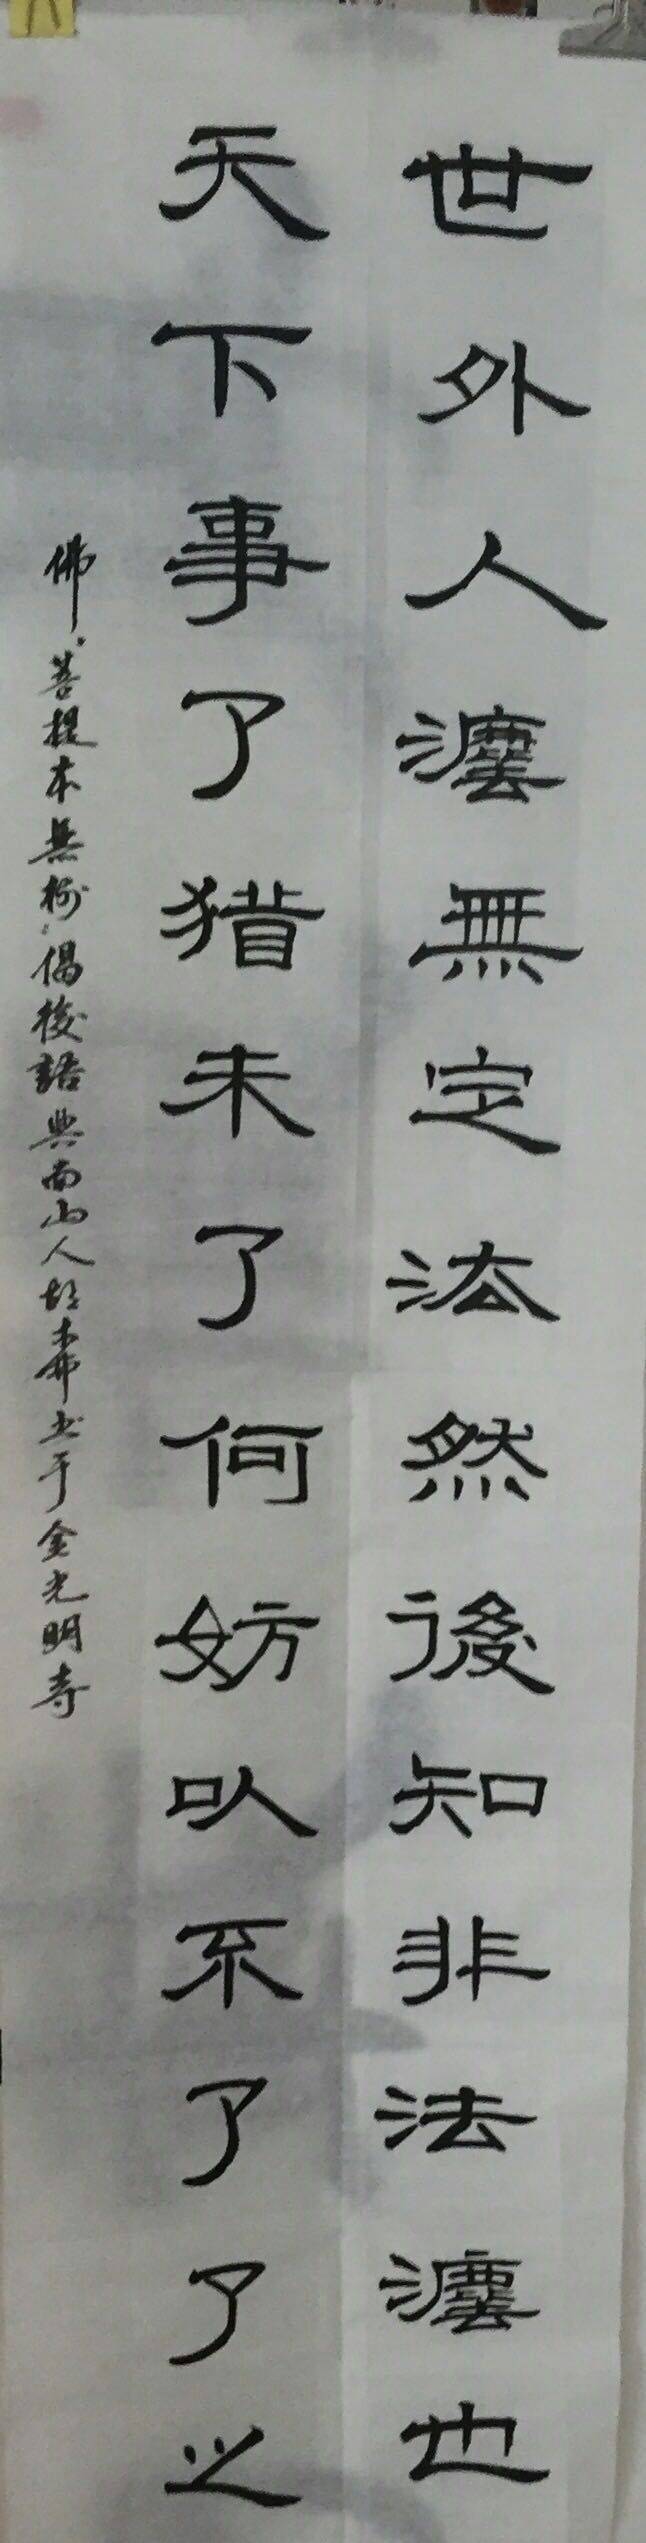 世外人灋無定法然後知非法灋也
天下事了猶未了何妨㕥不了了之
佛菩提本無樹偈後語典南山人書于金光明寺